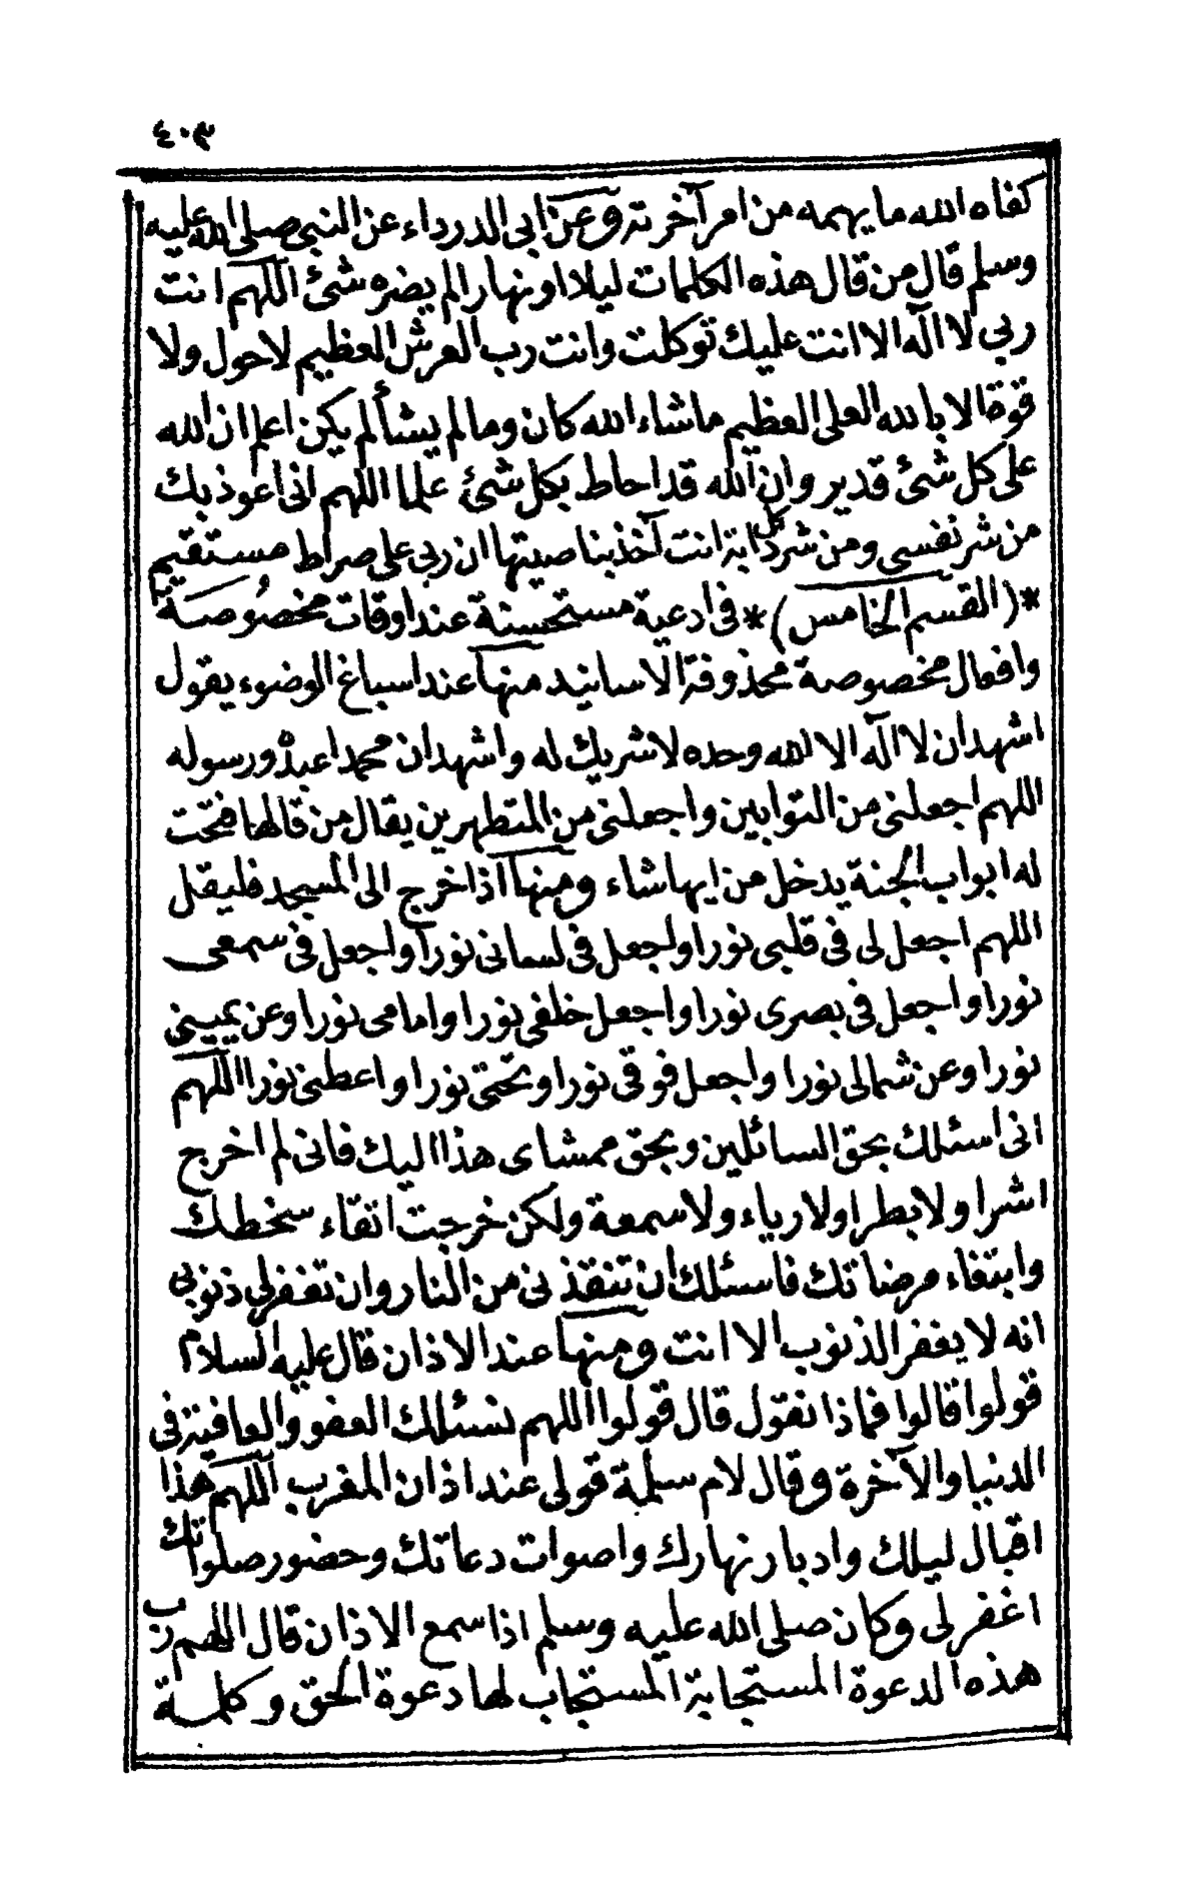 ٤٠٣
كفاه الله ما يهمه من امر آخرته وعن ابى الدرداء عن النبى صلى الله عليه
وسلم قال من قال هذه الكلمات ليلا او نهارا لم يضره شئ اللهم انت
ربي لا اله الا انت عليك توكلت وانت رب العرش العظيم لا حول ولا
قوة الا بالله العلى العظيم ما شاء الله كان وما لم يشأ لم يكن اعلم ان الله
على كل شئ قدير وان الله قد احاط بكل شئ علما اللهم انى اعوذ بك
من شر نفسى ومن شر كل دابة انت آخذ بناصيتها ان ربى على صراط مستقيم
*(القسم الخامس)* فى ادعية مستحسنة عند اوقات مخصوصة
وافعال مخصوصة محذوفة الاسانيد منها عند اسباغ الوضوء يقول
اشهد ان لا اله الا الله وحده لا شريك له واشهد ان محمدا عبده ورسوله
اللهم اجعلنى من التوابين واجعلنى من المتطهرين يقال من قالها فتحت
له ابواب الجنة يدخل من ايها شاء ومنها اذا خرج الى المسجد فليقل
اللهم اجعل لى فى قلبى نورا واجعل فى لسانى نورا واجعل فى سمعى
نورا واجعل فى بصرى نورا واجعل خلفى نورا وامامى نورا وعن يمينى
نورا وعن شمالى نورا واجعل فوقى نورا وتحتى نورا واعطنى نورا اللهم
انى اسئلك بحق السائلين وبحق ممشاى هذا اليك فانى لم اخرج
اشرا ولا بطرا ولا رياء ولا سمعة ولكن خرجت اتقاء سخطك
وابتغاء مرضاتك فاسئلك ان تنقذنى من النار وان تغفرلى ذنوبى
انه لا يغفر الذنوب الا انت ومنها عند الاذان قال عليه السلام
قولوا قالوا فماذا نقول قال قولوا اللهم نسئلك العفو والعافية فى
الدنيا والآخرة وقال لام سلمة قولى عند اذان المغرب اللهم هذا
اقبال ليلك وادبار نهارك واصوات دعاتك وحضور صلواتك
اغفر لى وكان صلى الله عليه وسلم اذا سمع الاذان قال اللهم رب
هذه الدعوة المستجابة المستجاب لها دعوة الحق وكلمة